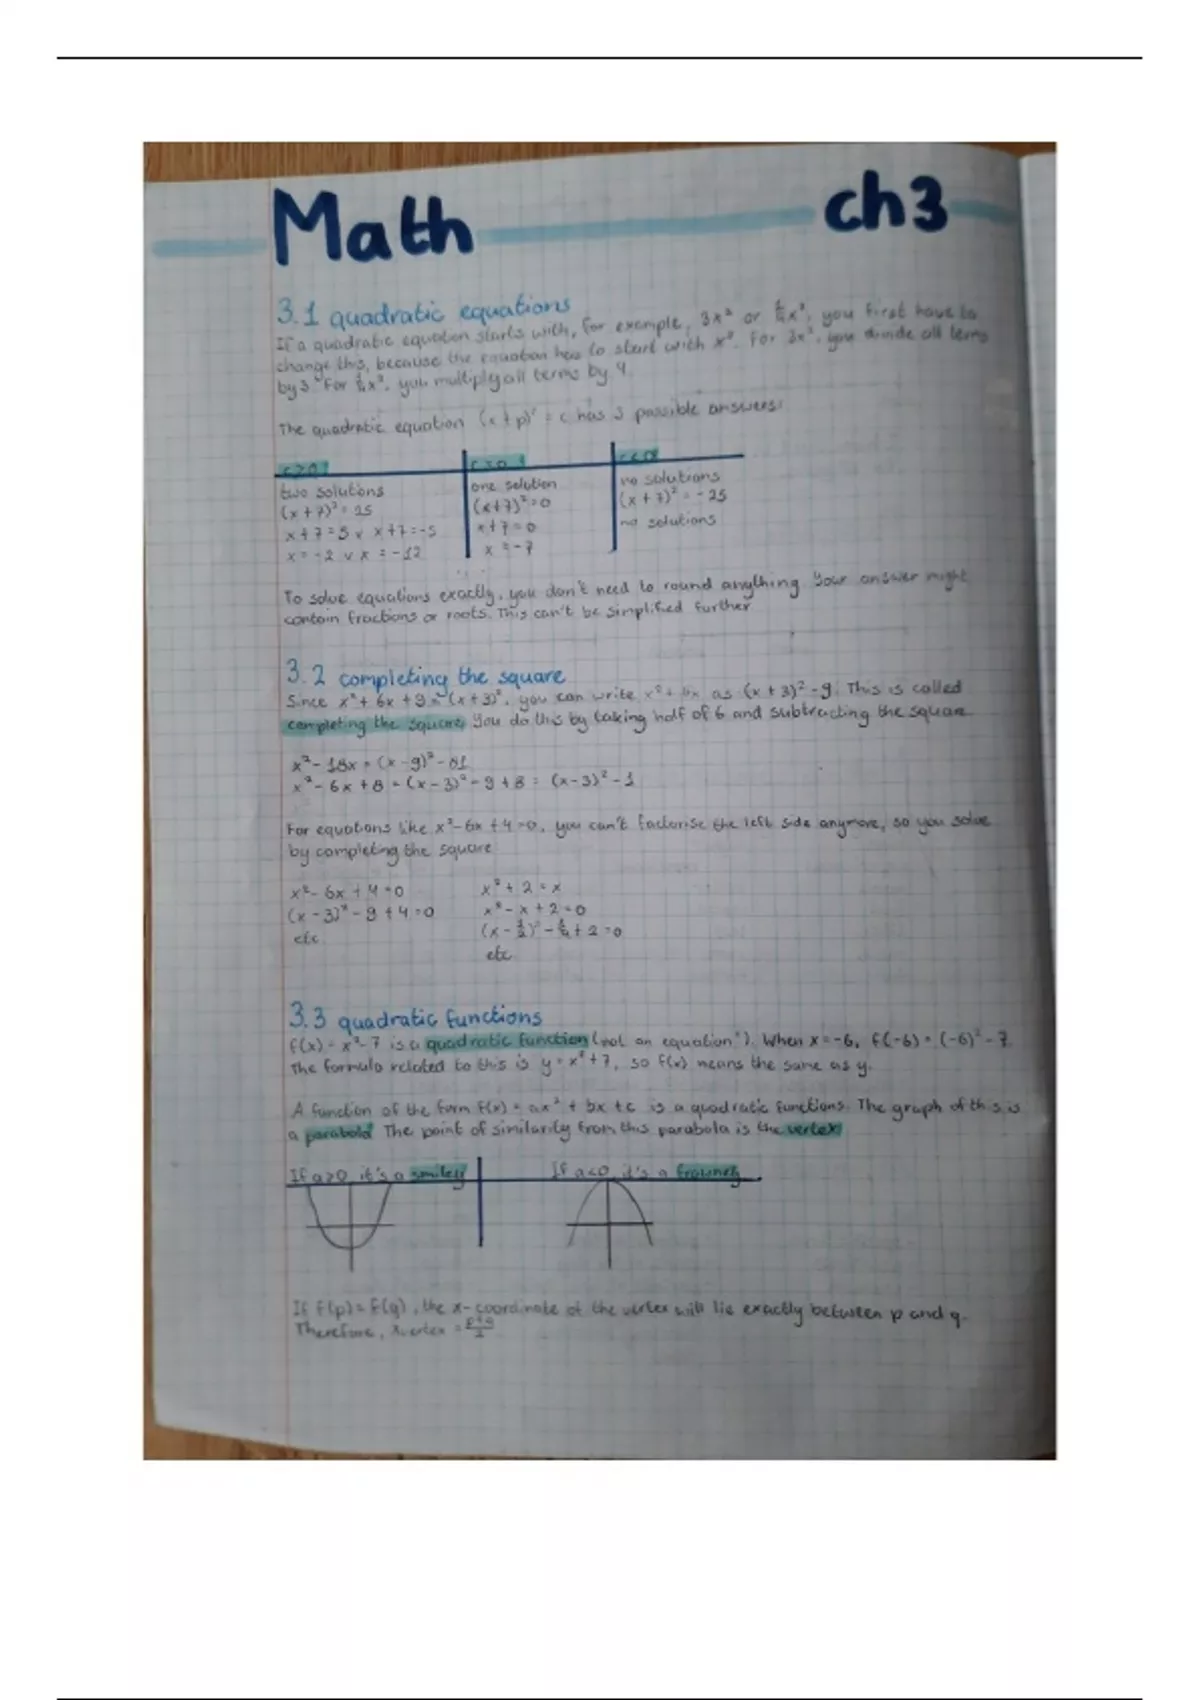 Math ch3
3.1 quadratic equations
If a quadratic equation starts with, for example, 3x² or ¼x², you first have to
change this, because the equation has to start with x². For 3x², you divide all terms
by 3. For ¼x², you multiply all terms by 4.
The quadratic equation (x + p)² = c has 3 possible answers:
c > 0 c = 0 c < 0
two solutions one solution no solutions
(x + 7)² = 25 (x+7)² = 0 (x + 7)² = -25
x + 7 = 5 v x + 7 = -5 x + 7 = 0 no solutions
x = -2 v x = -12 x = -7
To solve equations exactly, you don't need to round anything. Your answer might
contain fractions or roots. This can't be simplified further
3.2 completing the square
Since x² + 6x + 9 = (x + 3)², you can write x² + 6x as (x + 3)² - 9. This is called
completing the square. You do this by taking half of 6 and subtracting the square.
x² - 18x = (x - 9)² - 81
x² - 6x + 8 = (x - 3)² - 9 + 8 = (x - 3)² - 1
For equations like x² - 6x + 4 = 0, you can't factorise the left side anymore, so you solve
by completing the square
x² - 6x + 4 = 0 x² + 2 = x
(x - 3)² - 9 + 4 = 0 x² - x + 2 = 0
etc (x - ½)² - ¼ + 2 = 0
etc
3.3 quadratic functions
f(x) = x² - 7 is a quadratic function (not an equation"). When x = -6, f(-6) = (-6)² - 7.
The formula related to this is y = x² + 7, so f(x) means the same as y.
A function of the form f(x) = ax² + bx + c is a quadratic functions. The graph of this is
a parabola. The point of similarity from this parabola is the vertex
If a>0, it's a smiley If a<0, it's a
If f(p) = f(q), the x-coordinate of the vertex will lie exactly between p and q.
Therefore, xvertex = p+q/2